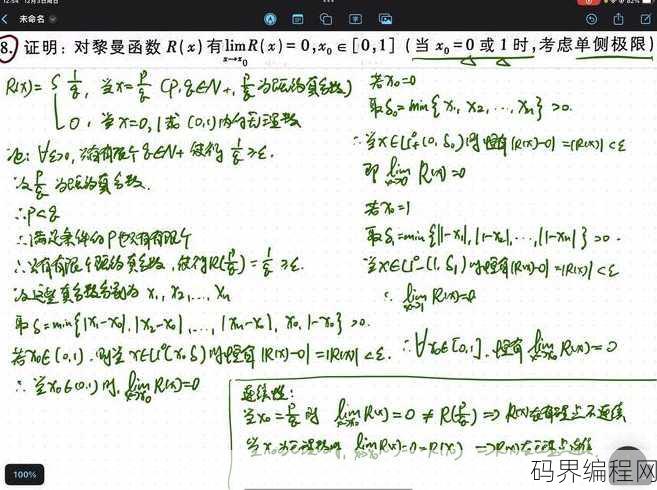 12:54 12月3日周日
82%
未命名
8. 证明：对黎曼函数 R(x) 有 lim R(x) = 0, x₀ ∈ [0,1] (当 x₀ = 0 或 1 时, 考虑单侧极限)
x→x₀
R(x) = { 1/q , 当x=p/q (p,q∈N+, p/q 为既约真分数)
0 , 当x=0,1或(0,1)内的无理数
∀ε>0, 只有有限个q∈N+ 使得 1/q ≥ε.
设 p/q 为既约真分数.
∴p<q
∴满足条件的p也只有有限个
∴只有有限个既约真分数, 使得R(p/q) = 1/q ≥ε.
设这些真分数分别为 x₁, x₂, ..., xₙ
取 δ=min{|x₁-x₀|, |x₂-x₀|, ..., |xₙ-x₀|, x₀, 1-x₀} >0.
若x₀∈(0,1). 则当 x∈U°(x₀,δ)时, 恒有|R(x)-0| = |R(x)| <ε.
∴当x₀∈(0,1)时, lim R(x)=0
x→x₀
若x₀=0
取δ₀=min{x₁, x₂, ..., xₙ} >0.
∴当x∈U°+(0, δ₀)时, 恒有|R(x)-0| = |R(x)| <ε
即 lim R(x)=0
x→0
若x₀=1
取δ₁=min{|1-x₁|, |1-x₂|, ..., |1-xₙ|} >0.
当x∈U°-(1, δ₁)时, 恒有|R(x)-0| = |R(x)| <ε
∴ lim R(x)=0
x→1
∴∀x₀∈[0,1]. 恒有 lim R(x)=0
x→x₀
连续性:
当x₀=p/q 时 lim R(x)=0 ≠ R(p/q) ⇒ R(x)在有理点不连续
x→x₀
当x₀为无理数时, lim R(x)=0=R(x₀) ⇒R(x)在无理点连续
x→x₀
100%
码界编程网